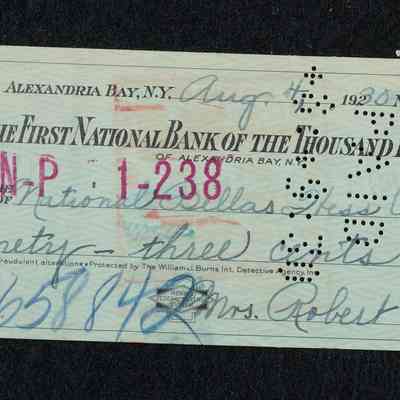 ALEXANDRIA BAY, N.Y. Aug. 4 1930 N
HE FIRST NATIONAL BANK OF THE THOUSAND I
OF ALEXANDRIA BAY, N.Y.
N-P 1-238
OF National Bellas Hess C
nety - three cents
fraudulent alterations • Protected by The William J. Burns Int. Detective Agency, Inc.
658842 Mrs. Robert